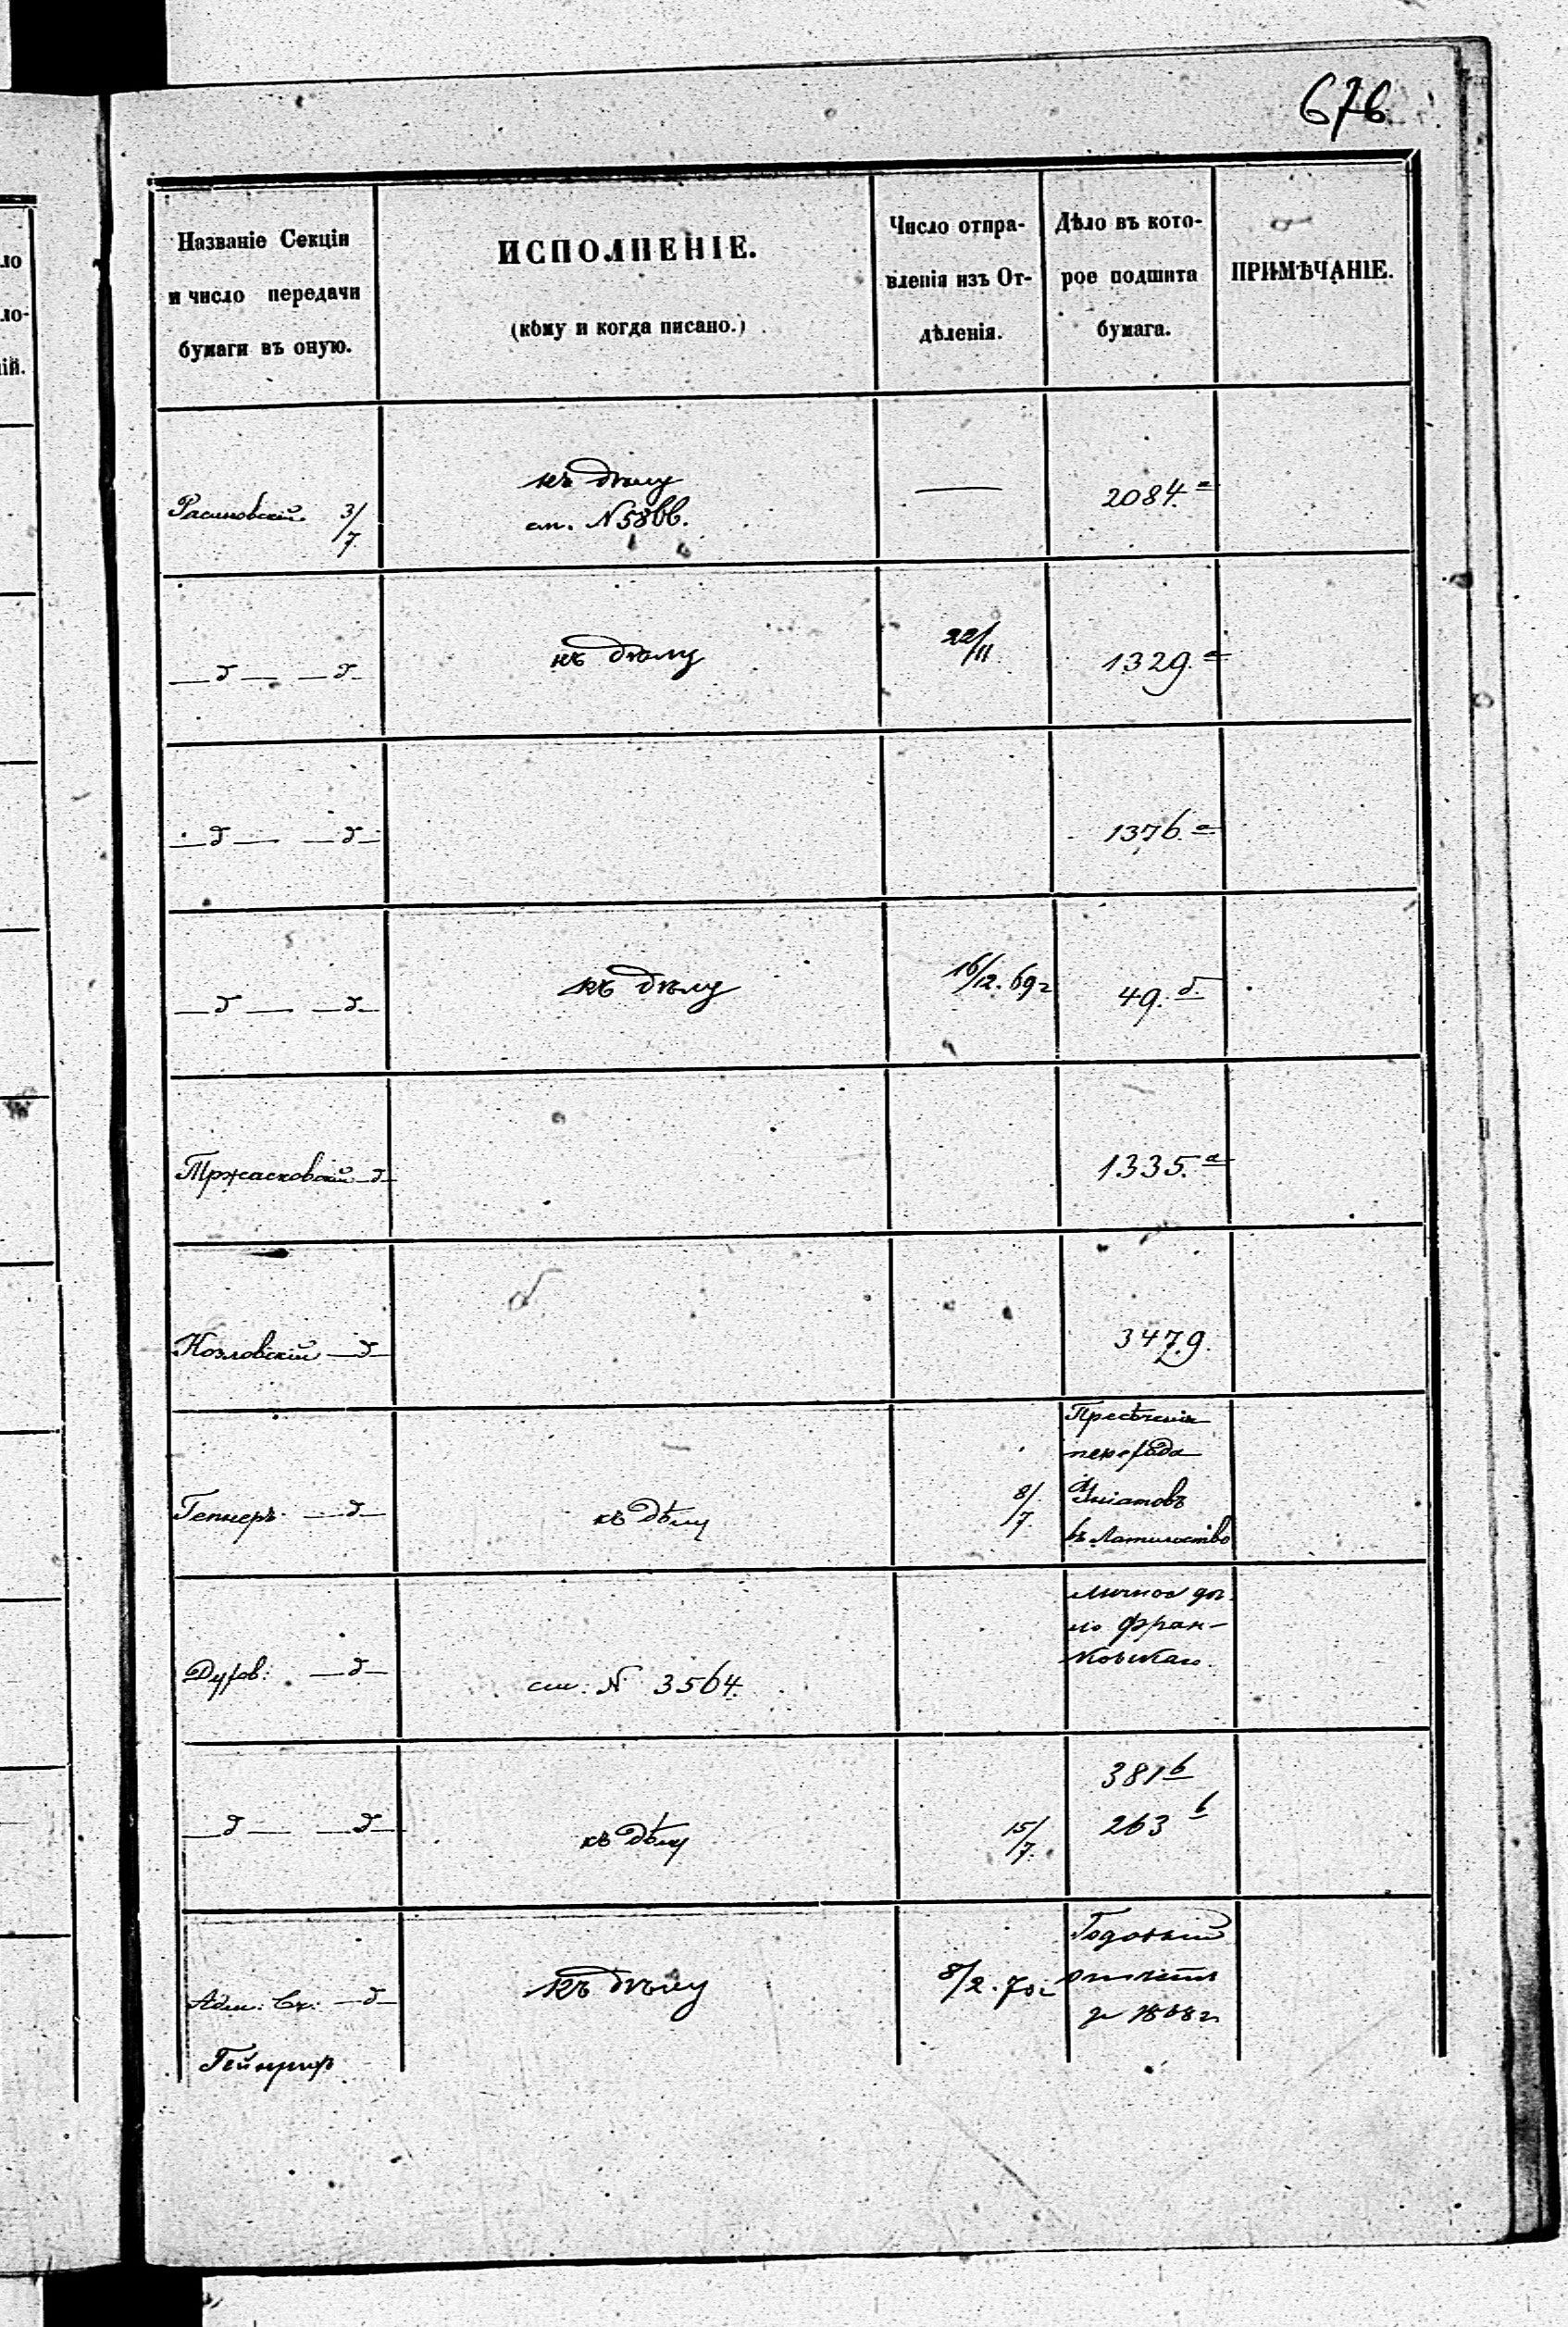 676
Названіе Секціи
и число передачи
бумаги въ оную.
ИСПОЛНЕНІЕ.
(кѣму и когда писано.)
Число отпра-
вленія изъ От-
дѣленія.
Дѣло въ кото-
рое подшита
бумага.
ПРИМѢЧАНІЕ.
ло
ло-
ій.
3/7
къ дѣлу
см. N 5866.
—
2084.а
—д— —д—
къ дѣлу
22/11
1329.а
—д— —д—
1376.а
—д— —д—
къ дѣлу
16/12. 69г
49.д
Тржасковскій —д—
1335.а
Козловскій —д—
3479.
Гепнеръ —д—
къ дѣлу
8/7.
Пресѣченія
перехода
Уніатовъ
въ Латинство
Дуров. —д—
см. N 3564.
личное дѣ-
ло Фран-
ковскаго.
—д— —д—
къ дѣлу
15/7.
381в
263в
Адм. Ск. —д—
Гейнрих
къ дѣлу
8/2. 70г
Годовый
отчетъ
за 1868г.